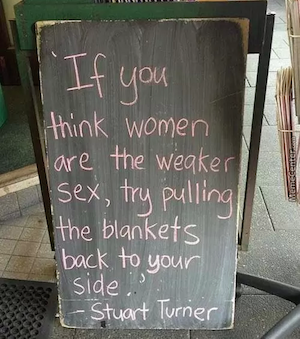 'If you
think women
are the weaker
sex, try pulling
the blankets
back to your
side..'
- Stuart Turner